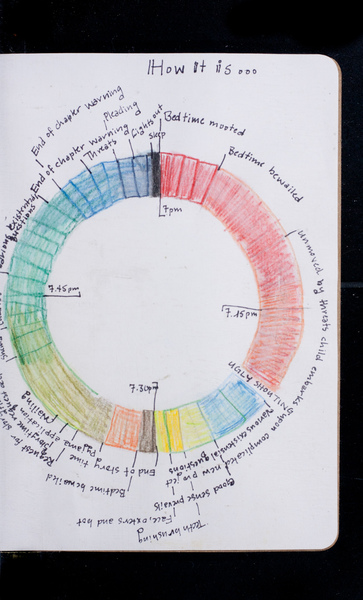 How it is...
Bedtime mooted
Bedtime bewailed
Unmoved by threats child embarks upon complicated new project
7pm
7.15pm
HOLY SHOWTUNES
Various existential questions
Good sense prevails
Teeth brushing
Face, oxters and bot
7.30pm
End of story time
Bedtime bewailed
Pyjama
application
Wailing
Request for
7.45pm
Various existential
questions
End of chapter warning
End of chapter warning
Threats
Pleading
Lights out
Sleep